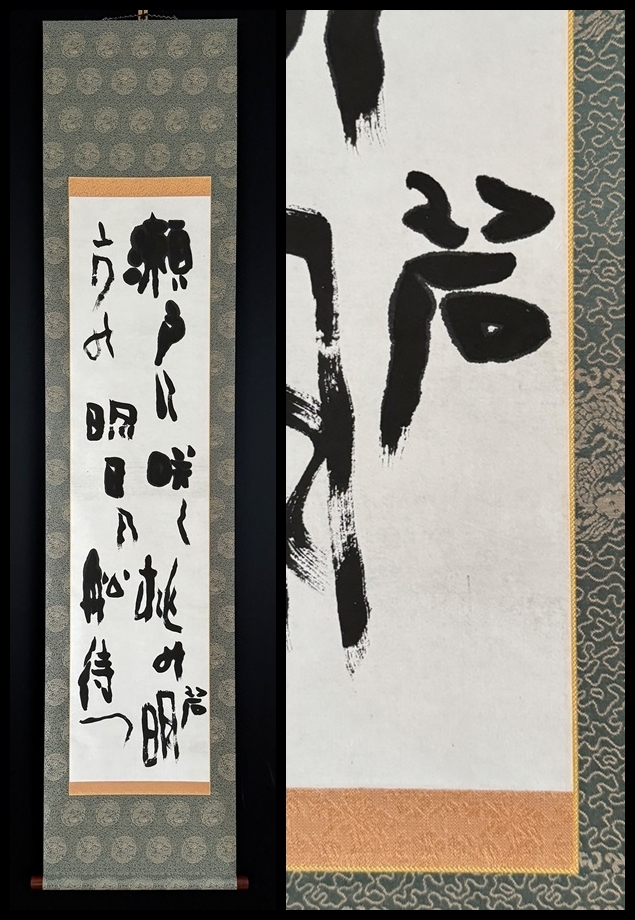 瀬戸に咲く桃の明
方の明日の船待つ
碧